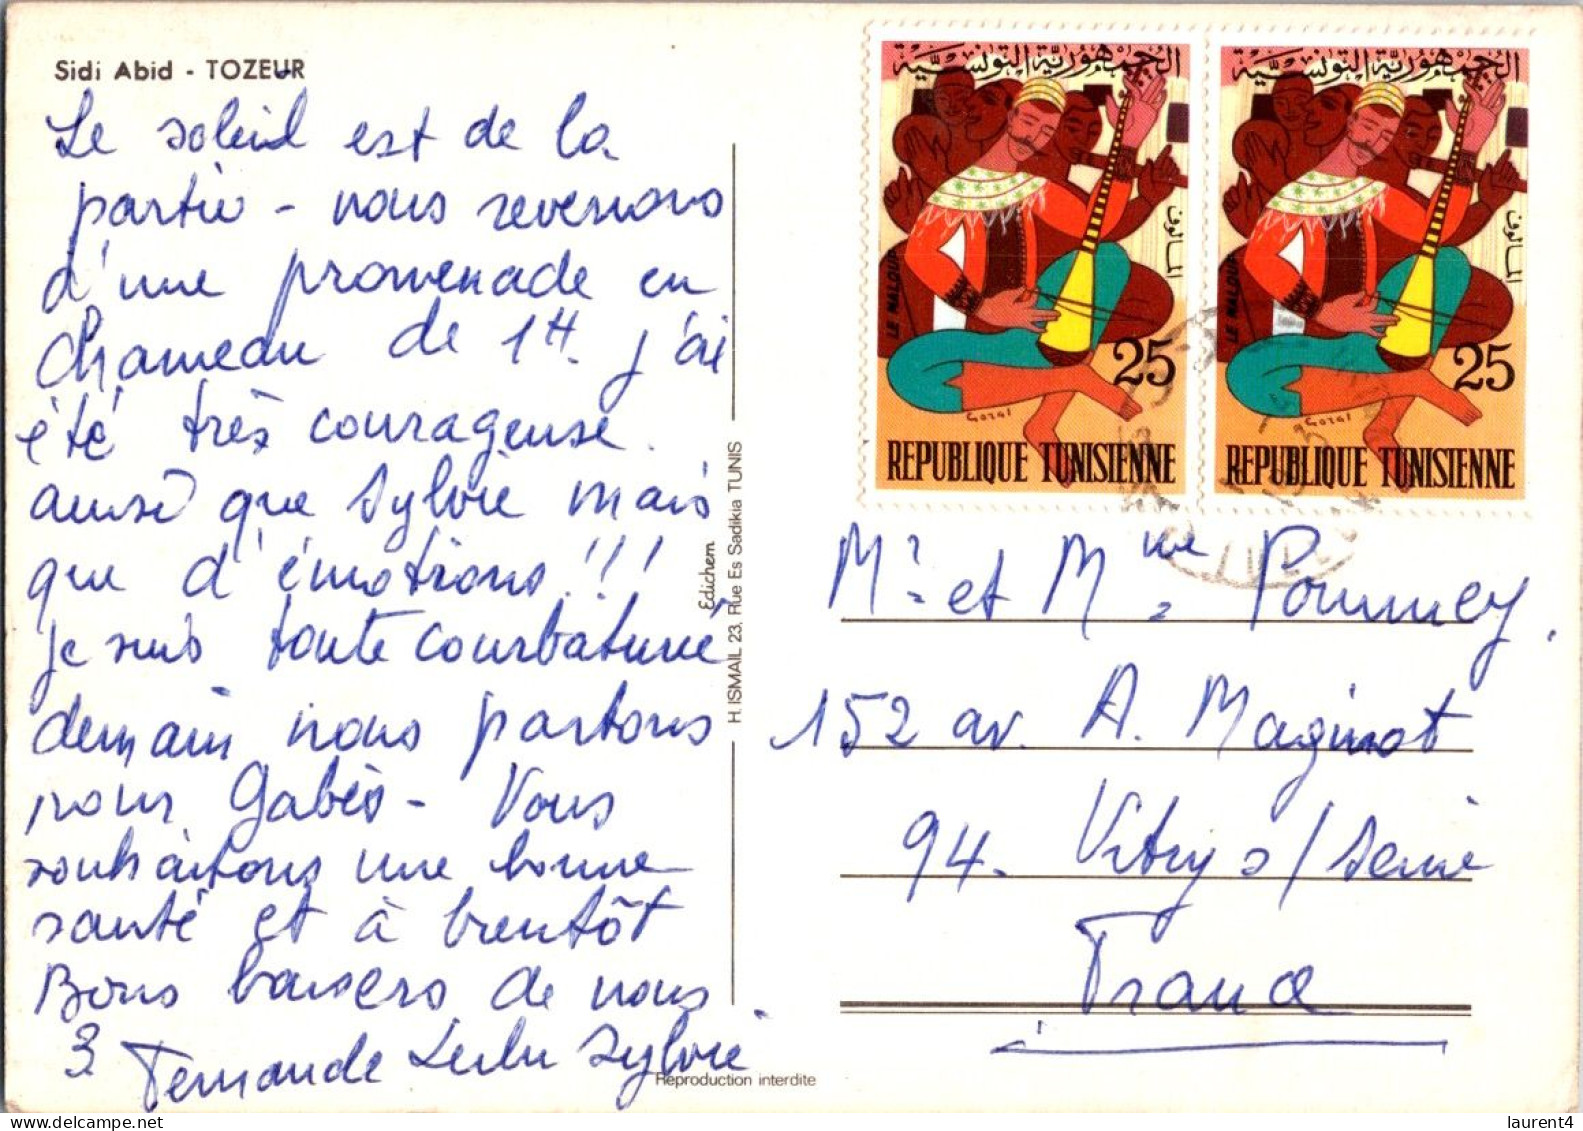 Sidi Abid - TOZEUR
Le soleil est de la
partie - nous revenons
d'une promenade en
chameau de 1H. j'ai
été très courageuse
aussi que Sylvie mais
que d'émotions!!!
je suis toute courbaturé
demain nous partons
pour Gabès - Vous
souhaitons une bonne
santé et à bientôt
Bons baisers de nous
3 Fernande Sylvie
Reproduction interdite
Edichem
H. ISMAIL 23, Rue Es Sadikia TUNIS
الجمهورية التونسية
المالوف
LE MALOUF
25
Gorgi
REPUBLIQUE TUNISIENNE
الجمهورية التونسية
المالوف
LE MALOUF
25
Gorgi
REPUBLIQUE TUNISIENNE
Mr et Mme Pommey.
152 av. A. Maginot
94. Vitry s/Seine
France
laurent4